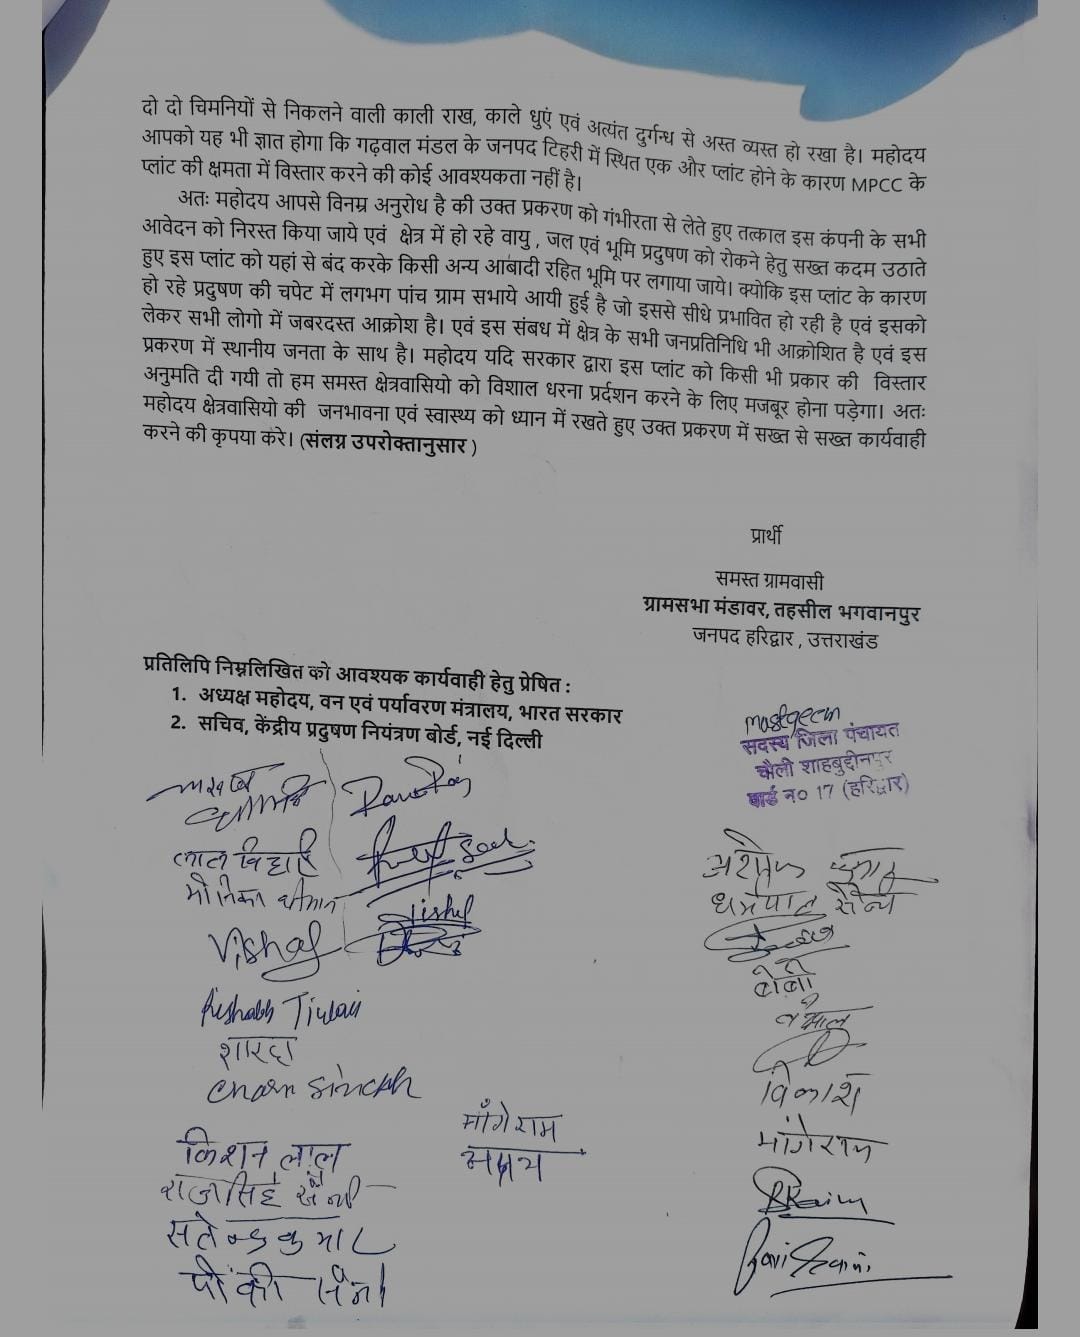 दो दो चिमनियों से निकलने वाली काली राख, काले धुएं एवं अत्यंत दुर्गन्ध से अस्त व्यस्त हो रखा है। महोदय
आपको यह भी ज्ञात होगा कि गढ़वाल मंडल के जनपद टिहरी में स्थित एक और प्लांट होने के कारण MPCC के
प्लांट की क्षमता में विस्तार करने की कोई आवश्यकता नहीं है।
अतः महोदय आपसे विनम्र अनुरोध है की उक्त प्रकरण को गंभीरता से लेते हुए तत्काल इस कंपनी के सभी
आवेदन को निरस्त किया जाये एवं क्षेत्र में हो रहे वायु , जल एवं भूमि प्रदुषण को रोकने हेतु सख्त कदम उठाते
हुए इस प्लांट को यहां से बंद करके किसी अन्य आबादी रहित भूमि पर लगाया जाये। क्योकि इस प्लांट के कारण
हो रहे प्रदुषण की चपेट में लगभग पांच ग्राम सभाये आयी हुई है जो इससे सीधे प्रभावित हो रही है एवं इसको
लेकर सभी लोगो में जबरदस्त आक्रोश है। एवं इस संबध में क्षेत्र के सभी जनप्रतिनिधि भी आक्रोशित है एवं इस
प्रकरण में स्थानीय जनता के साथ है। महोदय यदि सरकार द्वारा इस प्लांट को किसी भी प्रकार की विस्तार
अनुमति दी गयी तो हम समस्त क्षेत्रवासियो को विशाल धरना प्रर्दशन करने के लिए मजबूर होना पड़ेगा। अतः
महोदय क्षेत्रवासियो की जनभावना एवं स्वास्थ्य को ध्यान में रखते हुए उक्त प्रकरण में सख्त से सख्त कार्यवाही
करने की कृपया करे। (संलग्न उपरोक्तानुसार )
प्रार्थी
समस्त ग्रामवासी
ग्रामसभा मंडावर, तहसील भगवानपुर
जनपद हरिद्वार , उत्तराखंड
प्रतिलिपि निम्नलिखित को आवश्यक कार्यवाही हेतु प्रेषित :
1. अध्यक्ष महोदय, वन एवं पर्यावरण मंत्रालय, भारत सरकार
2. सचिव, केंद्रीय प्रदुषण नियंत्रण बोर्ड, नई दिल्ली
सदस्य जिला पंचायत
चौली शाहबुद्दीनपुर
वार्ड न० 17 (हरिद्वार)
लाल
मोनिका धीमान
Vishal
अशोक कुमार
धर्मपाल सैन्य
Rishabh Tiwari
शारदा
charn sinckh
विकाश
मांगेराम
मांगेराम
अक्षय
किशन लाल
राजसिंह सैनी
सतेन्द्र कुमार
पिंकी सैनी
Ravi Saini